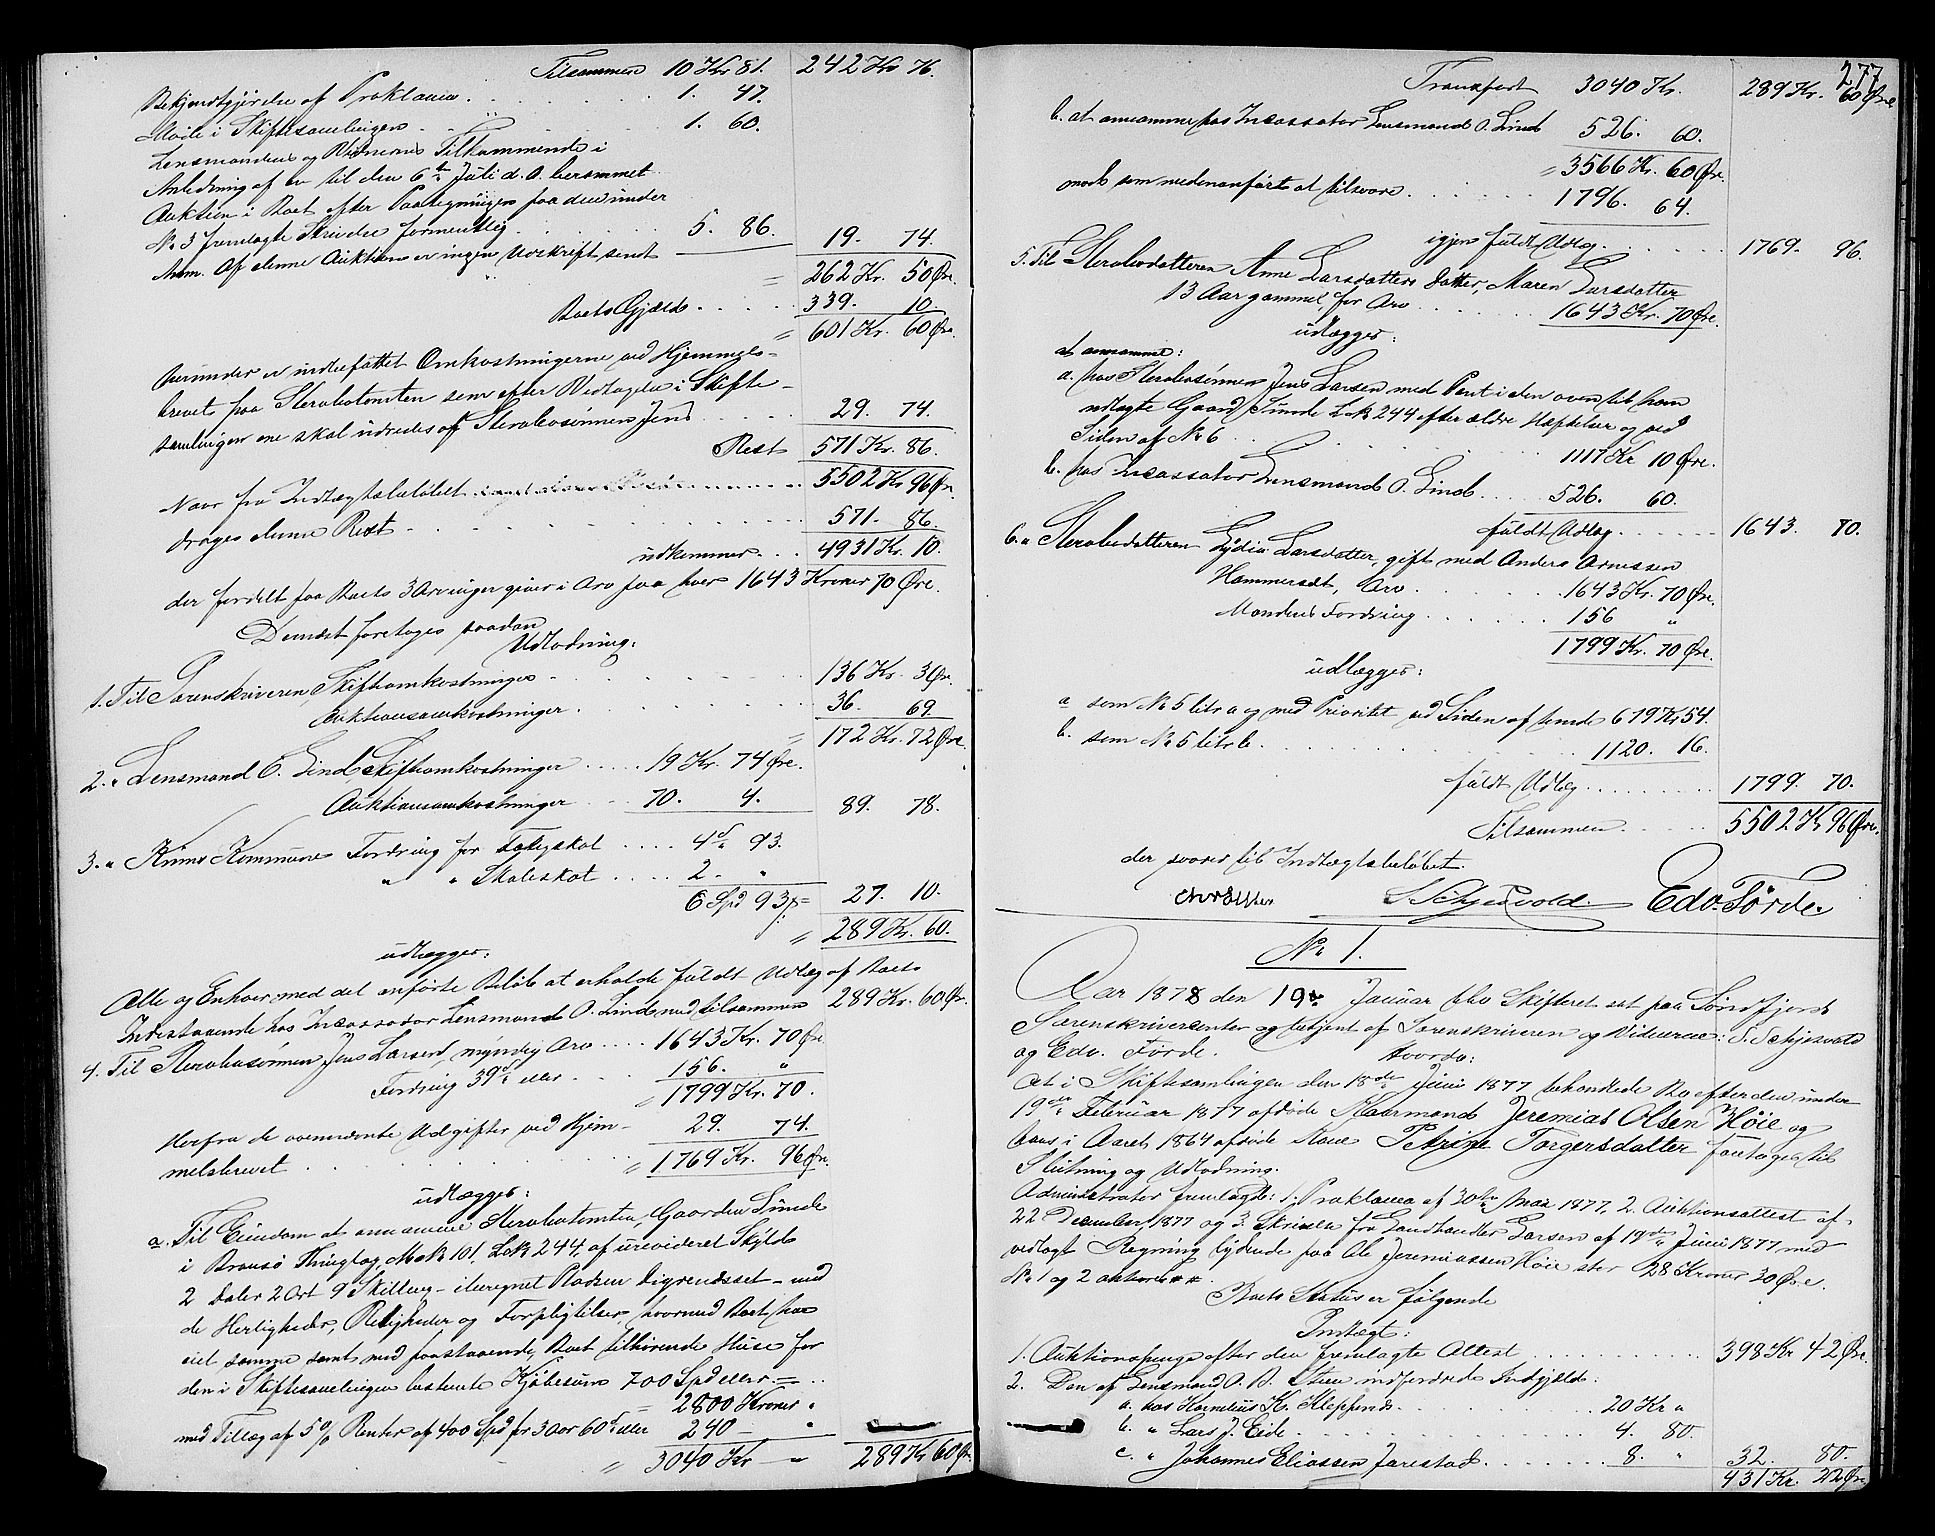 Tilsammen 10 Kr 81. 242 Kr 76.
Bekjendtgjørelse af Proklama . . . 1. 47.
Møde i Skiftesamlingen . . . 1. 60.
Lensmandens og Vidnernes Tilkommende i
Anledning af en til den 6te Juli d. A. berammet
Auktion i Boet efter Paategningen paa den under
No 3 fremlagte Skrivelse formentlig . . . 5. 86. 19. 74.
Anm. Af denne Auktion er ingen Udskrift sendt
" 262 Kr. 50 Øre.
Boets Gjæld . . . . 339. 10.
" 601 Kr. 60 Øre.
herunder er indbefattet Omkostningerne ved Hjemmels-
brevet paa Stervbotomten som efter Vedtagelse i Skifte-
samlingen ene skal udredes af Stervbosønnen Jens . . . 29. 74.
Rest 571 Kr. 86.
Naar fra Indtægtsbeløbet . . . 5502 Kr 96 Øre.
drages denne Rest . . . 571. 86.
udkommer . . . 4931 Kr. 10.
der fordelt paa Boets 3 Arvinger giver i Arv paa hver 1643 Kroner 70 Øre.
Dernæst foretages saadan
Udlodning:
1. Til Sorenskriveren, Skifteomkostninger . . . 136 Kr. 3 Øre.
Auktionsomkostninger . . . 36. 69.
" 172 Kr. 72 Øre.
2. " Lensmand O. Lind, Skifteomkostninger . . . . 19 Kr. 74 Øre.
Auktionsomkostninger . . . 70. 4. 89. 78.
3. " Kinns Kommune Fordring for Fatigskat . . . . 4d 93.
" " Skoleskat . . . . 2. "
6 Spd 93 = 27. 10.
" 289 Kr. 60.
udlægges:
Alle og Enhver med det anførte Beløb at erholde fuldt Udlæg af Boets
Indestaaende hos Incassator Lensmand O. Lind, med tilsammen 289 Kr. 60 Øre.
4. Til Stervbosønnen Jens Larsen, myndig Arv . . . . 1643 Kr. 70 Øre
Fordring 39d eller . . . 156. "
" 1799 Kr. 70.
Herfra de ovennævnte Udgifter ved Hjem- 29. 74.
melsbrevet . . . " 1769 Kr. 96 Øre.
udlægges:
a. Til Eiendom at annamme Stervbotomten, Gaarden Sunde
i Bremsø Thinglag, M. No 101, L. No 244, af urevideret Skyld
2 Daler 2 Ort 9 Skilling – iberegnet Pladsen – med
de Herligheder, Rettigheder og Forpligtelser, hvormed Boet har
eiet samme samt med paastaaende, Boet tilhørende Huse for
den i Skiftesamlingen bestemte Kjøbesum 700 Spd eller = . .
2800 Kroner "
med Tillæg af 5% Renter af 400 Spd for 3 Aar 60d eller 240 – "
" 3040 Kr – " 289 Kr 60 Øre
277
Transport 3040 Kr. 289 Kr. 60 Øre
b. at annamme hos Incassator Lensmand O. Lind 526. 60.
" 3566 Kr. 60 Øre.
mod som nedenanført at tilsvare . . . 1796. 64.
igjen fuldt Udlæg . . . 1769. 96.
5. Til Stervbodatteren Anne Larsdatters Datter, Maren Larsdatter
13 Aar gammel, for Arv . . . 1643 Kr. 70 Øre.
udlægges:
at annamme:
a. hos Stervbosønnen Jens Larsen med Pant i den oven til ham
udlagte Gaard Sunde L. No 244 efter ældre Hæftelser og ved
Siden af No 6 . . . 1117 Kr 10 Øre.
b. hos Incassator Lensmand O. Lind . . . . 526. 60.
fuldt Udlæg . . . . . 1643. 70.
6. " Stervbodatteren Lydia Larsdatter, gift med Anders Arnessen
Hammersæt, Arv . . . 1643 Kr. 70 Øre.
Mandens Fordring . . . 156 "
1799 Kr. 70 Øre.
udlægges:
a som No 5 litr a og med Prioritet ved Siden af samme 679 Kr 54.
b. som No 5 litr b. . . . 1120. 16.
fuldt Udlæg . . . 1799. 70.
Tilsammen . . . 5502 Kr 96 Øre.
der svarer til Indtægtsbeløbet.
S. Schjesvold. Edv. Førde.
No 1.
Aar 1878 den 19de Januar blev Skifteret sat paa Søndfjords
Sorenskrivercontor og betjent af Sorenskriveren og Vidnerne: S. Schjesvold
og Edv. Førde. Hvorda:
Det i Skiftesamlingen den 18de Juni 1877 behandlede Bo efter den under
19de Februar 1877 afdøde Kaarmand Jeremias Olsen Høie og
hans i Aaret 1864 afdøde Kone Petrine Torgersdatter foretoges til
Slutning og Udlodning.
Administrator fremlagde: 1. Proklama af 30te Mai 1877, 2. Auktionsattest af
22 December 1877 og 3. Skrivelse fra Landhandler Larsen af 19de Juni 1877 med
vedlagt Regning lydende paa Ole Jeremiassen Høie stor 28 Kroner 30 Øre.
No 1 og 2 aktores **.
Boets Status er følgende
Indtægt:
1. Auktionspenge efter den fremlagte Attest . . . 398 Kr 42 Øre.
2. Den af Lensmand indfordrede Indgjæld:
a. hos Kornelius Kr. Kleppenes . . . 20 Kr "
b. " Lars J. Eide . . . 4. 80.
c. " Johannes Eliassen Jarestad . . . 8. " 32. 80.
431 Kr. 22 Øre